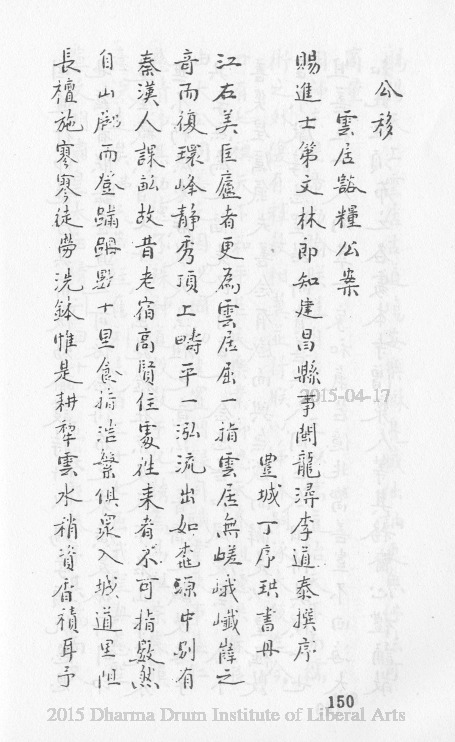 公移
雲居豁糧公案
賜進士第文林郎知建昌縣事閩龍潯李道泰撰序
豊城丁序珙書丹
江右美匡廬者更為雲居屈一指雲居無嵯峨巉之
奇而復環峰静秀頂上疇平一泓流出如桃源中別有
秦漢人課訟故昔老宿高賢住處徃来者不可指數然
自山而登蹣跚十里食指浩繁俱入城道里怛
長檀施寥寥徒勞洗鉢惟是耕犂雲水稍資香積耳予
2015-04-17
150
2015 Dharma Drum Institute of Liberal Arts